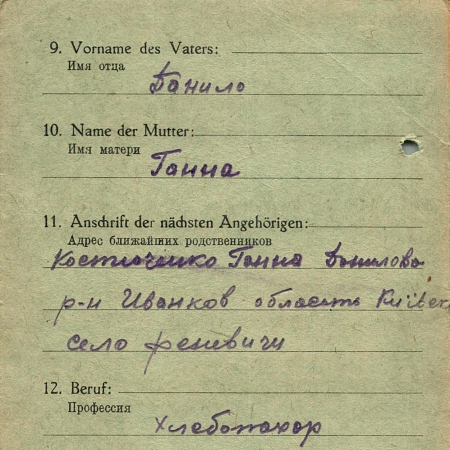 9. Vorname des Vaters:
Имя отца
Данило
10. Name der Mutter:
Имя матери
Ганна
11. Anschrift der nächsten Angehörigen:
Адрес ближайших родственников
Костюченко Ганна Данилово
р-н Иванков область Київск
село феневичи
12. Beruf:
Профессия
Хлебопахор